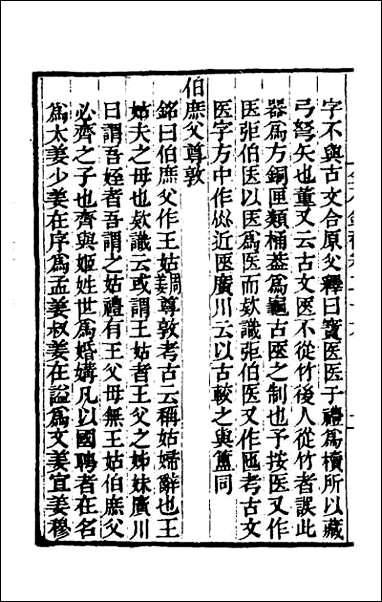 字不與古文合原父釋曰寶医医于禮為櫝所以藏
弓弩矢也董又云古文医不從竹後人從竹者誤此
器為方銅匣類桶葢為龜古医之制也予按医又作
医弫伯医以医為医而款識弫伯医又作匜考古文
医字方中作㸚近医廣川云以古較之與簠同
伯庶父尊敦
銘曰伯庶父作王姑尊敦考古云稱姑婦辭也王
姑夫之母也款識云或謂王姑者王父之姊妹廣川
曰謂吾姪者吾謂之姑禮有王父母無王姑伯庶父
必齊之子也齊與姬姓世為婚媾凡以國聘者在名
為太姜少姜在序為孟姜叔姜在謚為文姜宣姜穆